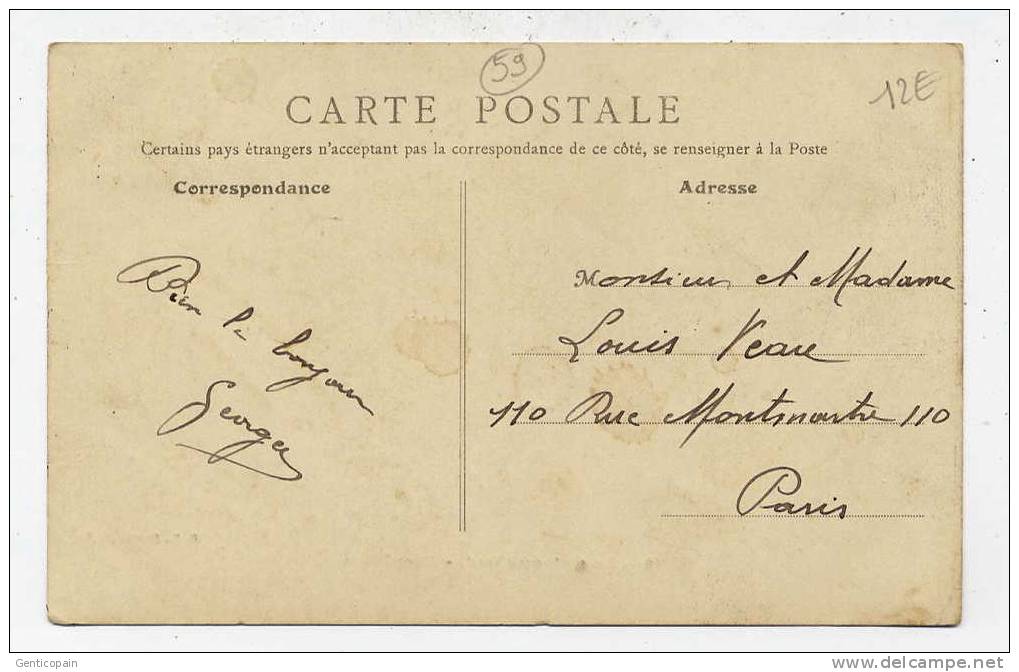 59
12E
CARTE POSTALE
Certains pays étrangers n'acceptant pas la correspondance de ce côté, se renseigner à la Poste
Correspondance
Adresse
Bien le bonjour
Georges
Monsieur et Madame
Louis
110 Rue Montmartre 110
Paris
Genticopain
www.delcampe.net